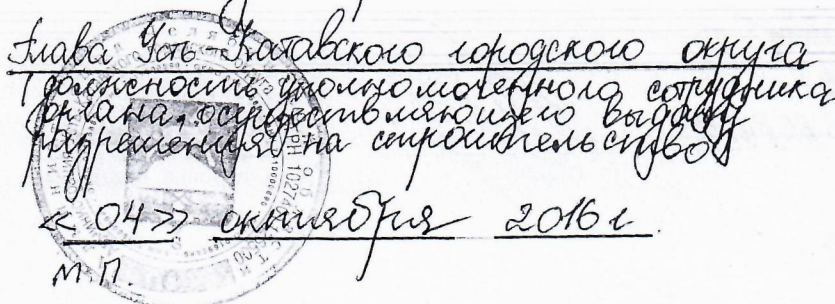 Глава Усть-Катавского городского округа
(должность уполномоченного сотрудника
органа, осуществляющего выдачу
разрешения на строительство)
«04» октября 2016 г.
М.П.